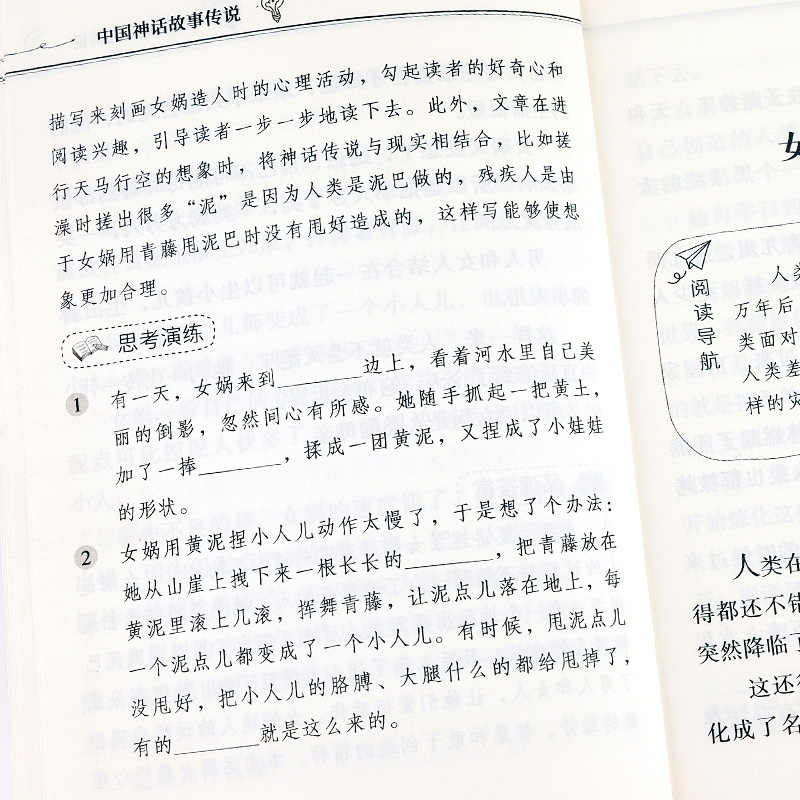 中国神话故事传说
描写来刻画女娲造人时的心理活动，勾起读者的好奇心和
阅读兴趣，引导读者一步一步地读下去。此外，文章在进
行天马行空的想象时，将神话传说与现实相结合，比如搓
澡时搓出很多“泥”是因为人类是泥巴做的，残疾人是由
于女娲用青藤甩泥巴时没有甩好造成的，这样写能够使想
象更加合理。
思考演练
1 有一天，女娲来到________边上，看着河水里自己美
丽的倒影，忽然间心有所感。她随手抓起一把黄土，
加了一捧________，揉成一团黄泥，又捏成了小娃娃
的形状。
2 女娲用黄泥捏小人儿动作太慢了，于是想了个办法：
她从山崖上拽下来一根长长的________，把青藤放在
黄泥里滚上几滚，挥舞青藤，让泥点儿落在地上，每
一个泥点儿都变成了一个小人儿。有时候，甩泥点儿
没甩好，把小人儿的胳膊、大腿什么的都给甩掉了，
有的________就是这么来的。
女
阅读导航
人类
万年后
类面对
人类差
样的灾
人类在
得都还不错
突然降临了
这还得
化成了名